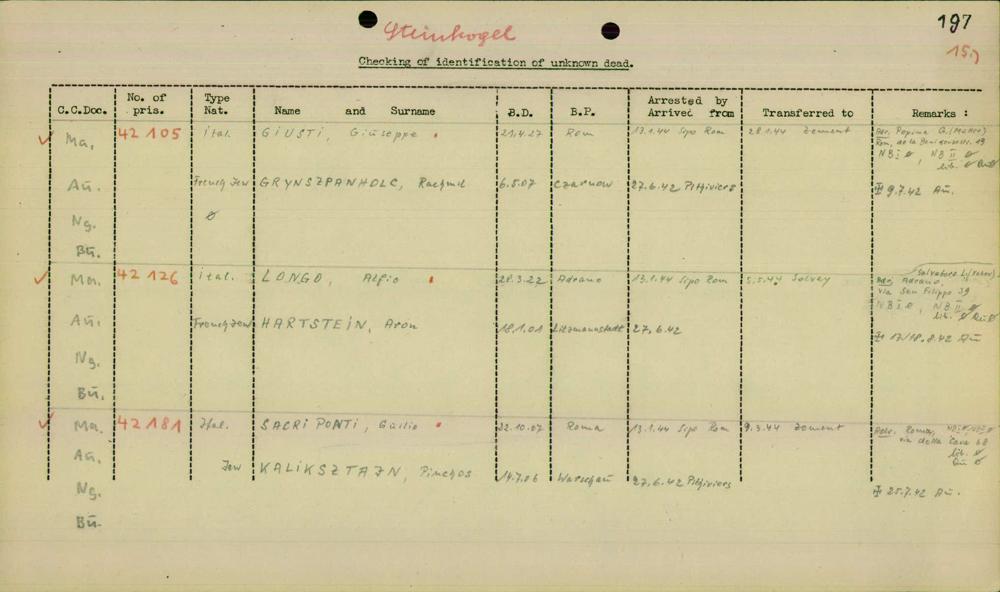 197
Steinkogel
15.)
Checking of identification of unknown dead.
C.C.Doc. No. of pris. Type Nat. Name and Surname B.D. B.P. Arrested by Arrived from Transferred to Remarks :
Ma. 42105 ital. GIUSTI, Giuseppe 21.4.27 Rom 13.1.44 Sipo Rom 28.1.44 Zement Adr. Popina G. (Mutter)
Rom,
NB I ∅, NB II ∅
lib. ∅ Bu ∅
Au. French Jew GRYNSZPANHOLC, Rachmil 6.5.07 Czarnow 27.6.42 Pithiviers ‡ 9.7.42 Au.
Ng. ∅
Bu.
Ma. 42126 ital. LONGO, Alfio 28.3.22 Adrano 13.1.44 Sipo Rom 5.5.44 Solvay Salvatore L. (Vater)
Adr. Adrano,
via San Filippo 39
NB I ∅, NB II ∅
lib. ∅ Bu ∅
Au. French Jew HARTSTEIN, Aron 18.1.01 Litzmannstadt 27.6.42 ‡ 17/18.8.42 Au
Ng.
Bu.
Ma. 42181 Ital. SACRIPONTI, Giulio 22.10.07 Roma 13.1.44 Sipo Rom 9.3.44 Zement Adr. Roma, NB I ∅ NB II ∅
via della Cava 68
lib. ∅
Bu ∅
Au. Jew KALIKSZTAJN, Pinchos 14.7.06 Warschau 27.6.42 Pithiviers ‡ 25.7.42 Au.
Ng.
Bu.